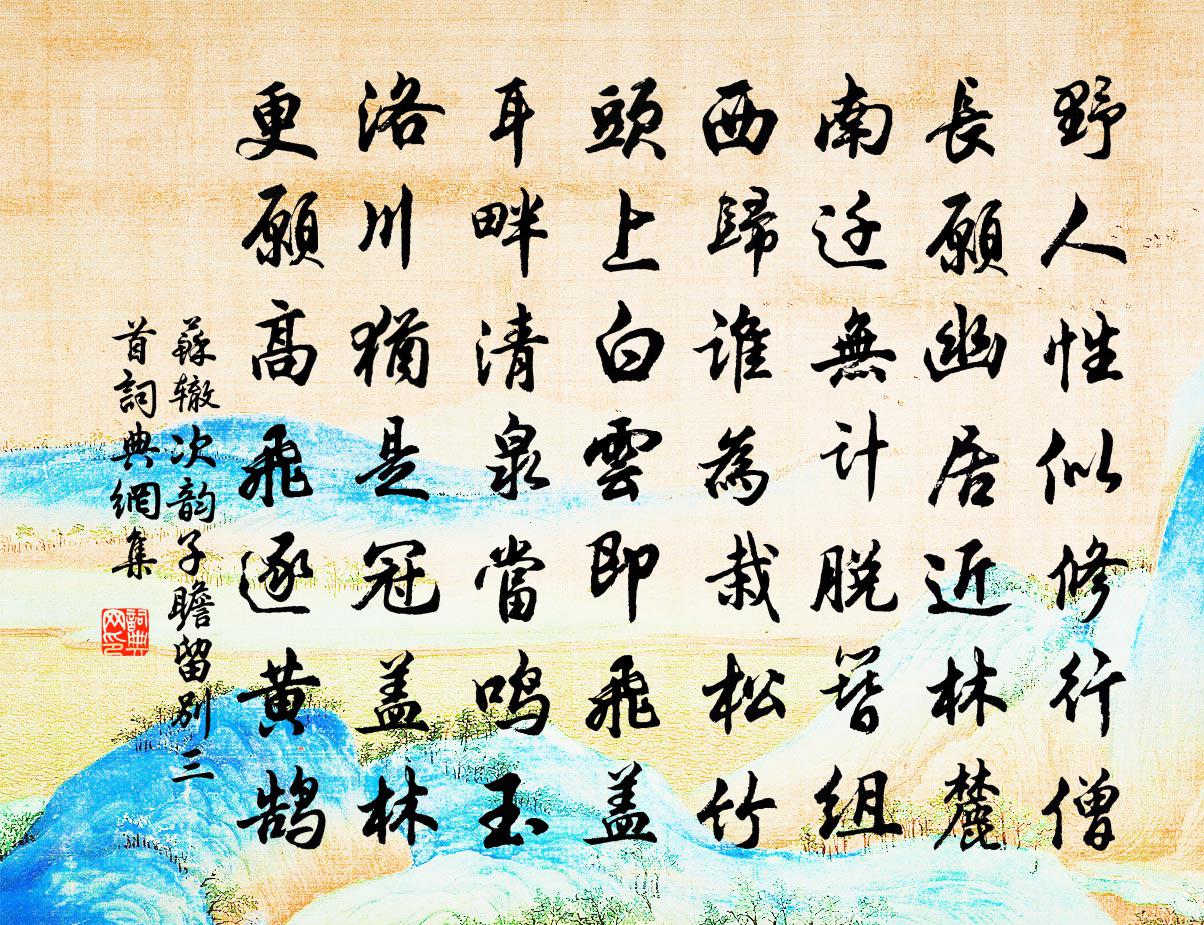 野人性似修行僧
長願幽居近林麓
南迁無計脱簪組
西歸誰為栽松竹
頭上白雲即飛盖
耳畔清泉當鳴玉
洛川猶是冠盖林
更願高飛逐黄鹄
蘇辙次韵子瞻留别三
首詞典網集
詞典
网印